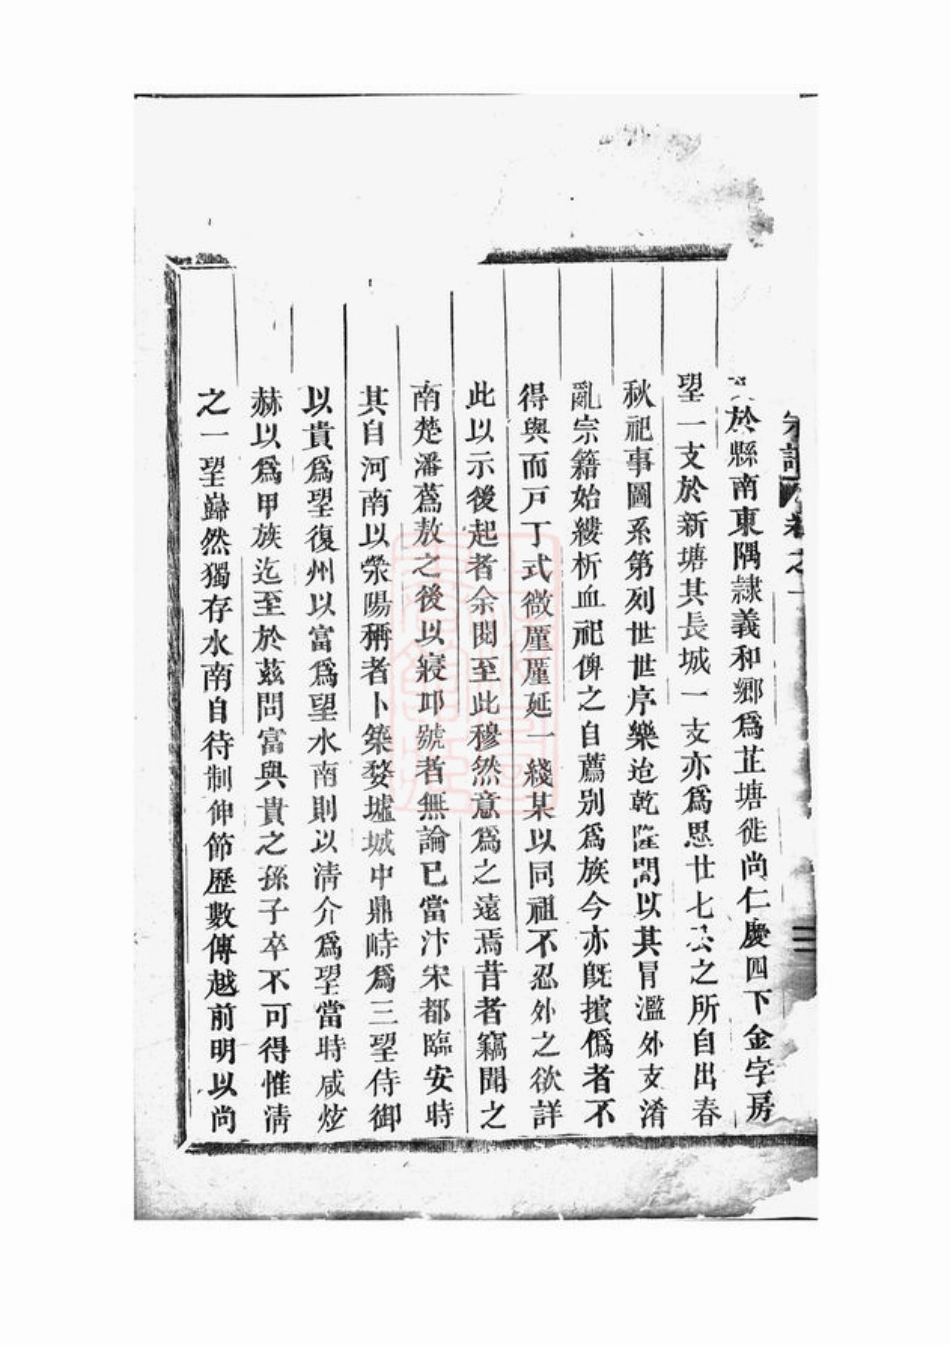 宗譜 卷之一
於縣南東隅隸義和鄉爲芷塘徙尚仁慶四下金字房
望一支於新塘其長城一支亦爲思廿七公之所自出春
秋祀事圖系第列世世序樂迨乾隆間以其冐濫外支淆
亂宗籍始縷析血祀俾之自薦别爲族今亦旣擯僞者不
得與而戸丁式微厪厪延一綫某以同祖不忍外之欲詳
此以示後起者余閱至此穆然意爲之遠焉昔者竊聞之
南楚潘蒍敖之後以寢邱號者無論已當汴宋都臨安時
其自河南以滎陽稱者卜築婺墟城中鼎峙爲三望侍御
以貴爲望復州以富爲望水南則以淸介爲望當時咸炫
赫以爲甲族迄至於兹問富與貴之孫子卒不可得惟淸
之一望巋然獨存水南自待制伸節歷數傳越前明以尚